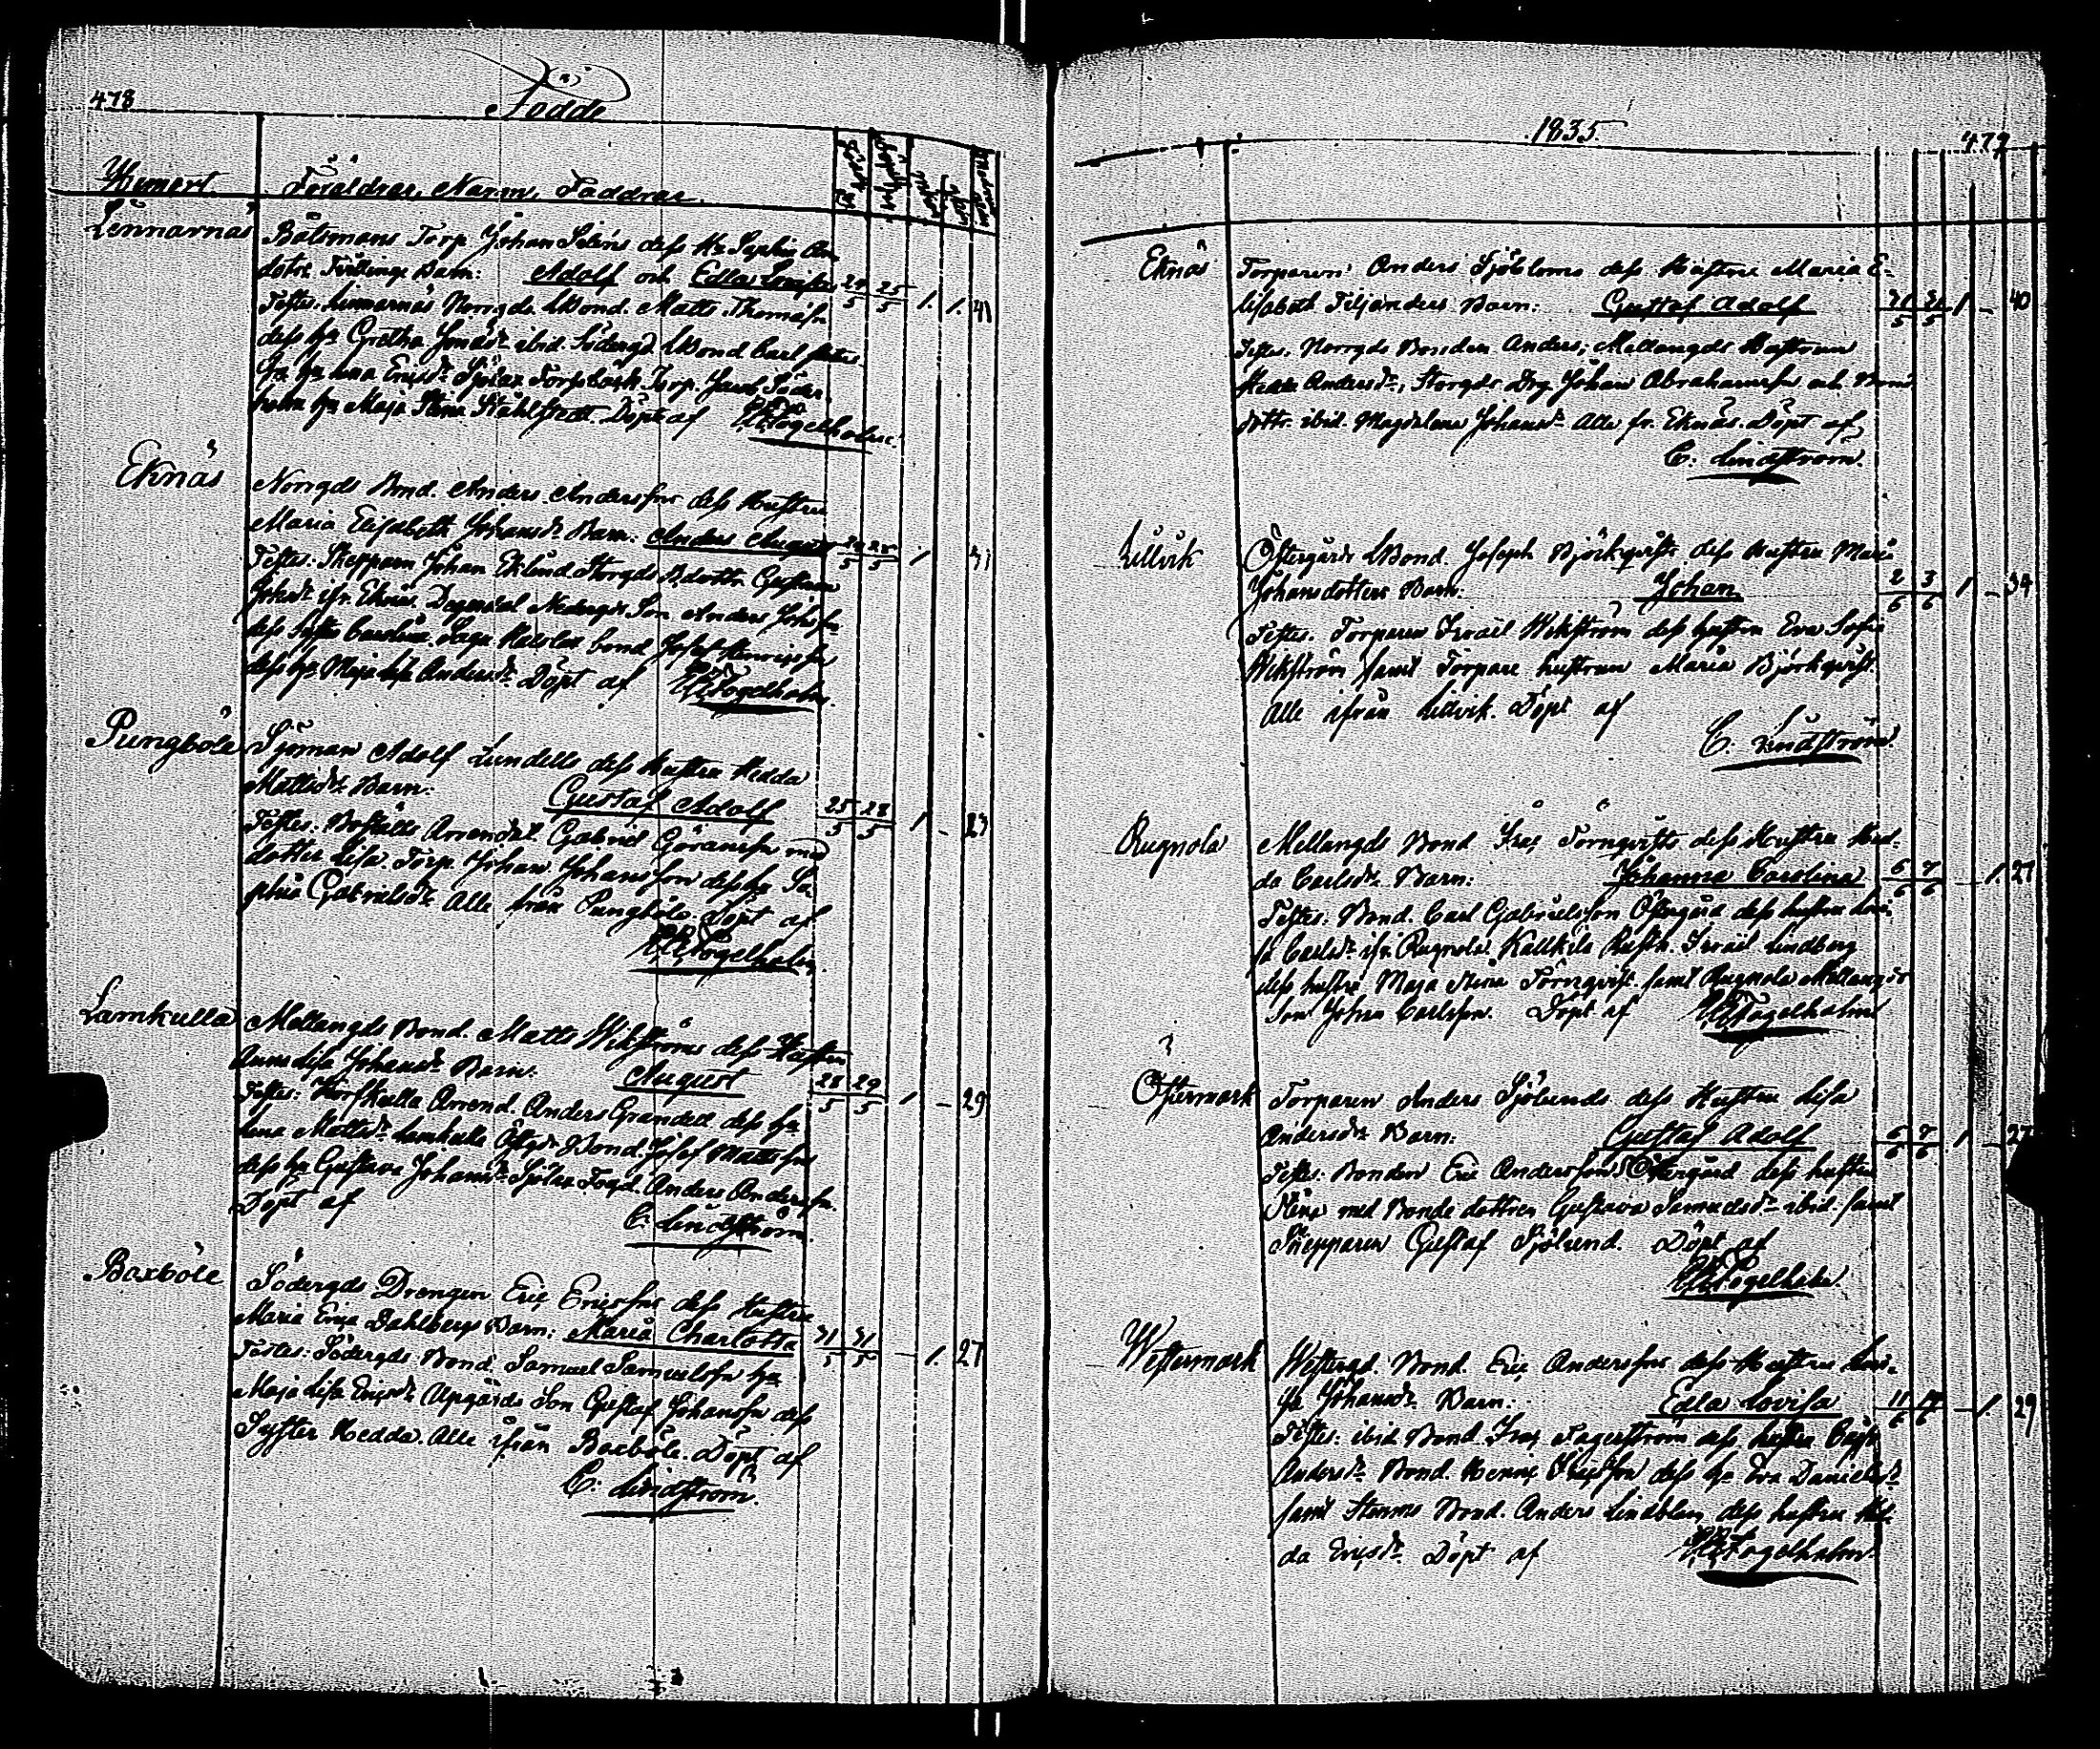 478
Födde
Hemort.
Föräldrar, Namn, Faddrar.
Lennarnäs
Båtsmans Torp Johan dess
dotrs Tvillinge Barn: Adolf och Edla Lovisa 24/5 25/5 1. 1. 41
Testes. Lennarnäs Norrgds LBond. Matts Thomasson
dess hu Gretha ibid. Södergd LBond Carl
Sjölax Torp. Jacob Söder
hu Maja Stina Ståhlstedt. Döpt af Fogelholm.
Eknäs
Norrgds Bond. Anders Anderssons dess Hustru
Maria Elisabeth Johansdr Barn: Anders August 5 28/5 1
Testes: Skepparn Johan Eklund Storgds Bdottr Gustava
Eknäs. Dragsdal Nedergds Son Anders
dess Syster Carolina. bond Josef Henricsson
dess hu Maja Lisa Andersdr Döpt af Fogelholm.
Pungböle
Sjöman Adolf Lundells dess Hustru Hedda
Mattsdr Barn: Gustaf Adolf 25/5 28/5 1 - 23
Testes: Boställs Arrendat. Gabriel Göransson med
dotter Lisa. Torp. Johan Johansson dess hu So-
phia Gabrielsdr Alle från Pungböle. Döpt af
Fogelholm.
Lamkulla
Mellangds Bond. Matts Wikströms dess Hustru
Anna Lisa Johansdr Barn: August 28/5 29/5 1 - 29
Testes: Arrend. Anders Grandell dess hu
Lena Mattsdr Lamkulla Östgds Bond. Josef Mattsson
dess hu Gustava Johansdr Sjölax Torp. Anders Andersson.
Döpt af C: Lindström.
Baxböle
Södergds Drengen Eric Ericssons dess Hustru
Maria Erica Dahlbergs Barn: Maria Charlotta 31/5 31/5 - 1. 27
Testes: Södergds Bond. Samuel Samuelsson hu
Maja Lisa Ericsdr Uppgårds Son Gustaf Johansson dess
Syster Hedda. Alle ifrån Baxböle. Döpt af
C: Lindström.
1835.
479
Eknäs
Torparen Anders Sjöbloms dess Hustru Maria E-
lisabeth Siljanders Barn: Gustaf Adolf 31/5 31/5 1 - 40
Testes. Norrgds Bonden Anders; Mellangds Hustrun
Hedda Andersdr, Storgds Drg. Johan Abrahamsson och Bond
dottr. ibid. Magdalena Johansdr Alle fr. Eknäs. Döpt af
C: Lindström.
Lillvik
Östergårds LBond. Joseph Björkqvists dess Hustru Maria
Johansdotters Barn: Johan 2/6 3/6 1 - 34
Testes. Torparen Israël Wikström dess hustru Eva Sofia
Wikström samt Torpare hustrun Maria Björkqvist.
Alle ifrån Lillvik. Döpt af
C: Lindström.
Rugnola
Mellangds Bond Isac Törnqvists dess Hustru Hed-
da Carlsdr Barn: Johanna Carolina 6/6 7/6 - 1. 27
Testes: Bond. Carl Gabrielsson Östergård dess hustru Lovi-
sa Carlsdr ifr. Rugnola. Kallkila Rusth. Israël Lindberg
dess hustru Maja Stina Törnqvist. samt Rugnola Mellangds
Son Johan Carlsson. Döpt af Fogelholm
Östermark
Torparen Anders Sjölunds dess Hustru Lisa
Andersdr Barn: Gustaf Adolf 6/6 7/6 1 - 27
Testes: Bonden Eric Andersson Östergård dess hustru
Stina med Bonde dottren Gustava Samuelsdr ibid. samt
Skepparen Gustaf Sjölund. Döpt af
Fogelholm.
Westermark
Westergd. Bond. Eric Anderssons dess Hustru Lovi-
sa Johansdr Barn: Edla Lovisa 11/6 14/6 - 1. 29
Testes: ibid Bond. Isac Fagerström dess hustru
Andersdr Bond. Henric Ericsson dess hu Eva Danielsdr
samt Bond. Anders Lindblom dess hustru Hed-
da Ericsdr Döpt af Fogelholm.